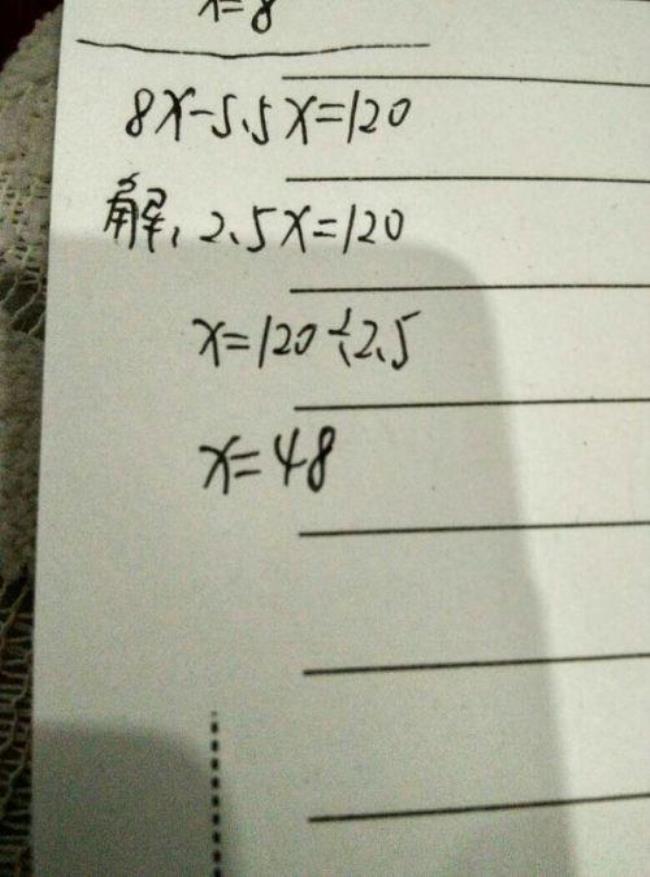 x=8
8x-5.5x=120
解、2.5x=120
x=120÷2.5
x=48